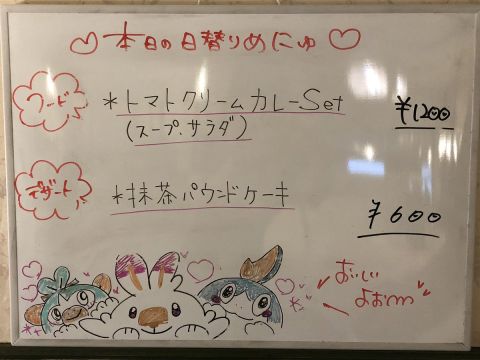 本日の日替りめにゅ
フード
*トマトクリームカレーSet
(スープ、サラダ)
¥1200
デザート
*抹茶パウンドケーキ
¥600
おいしい
よぉm